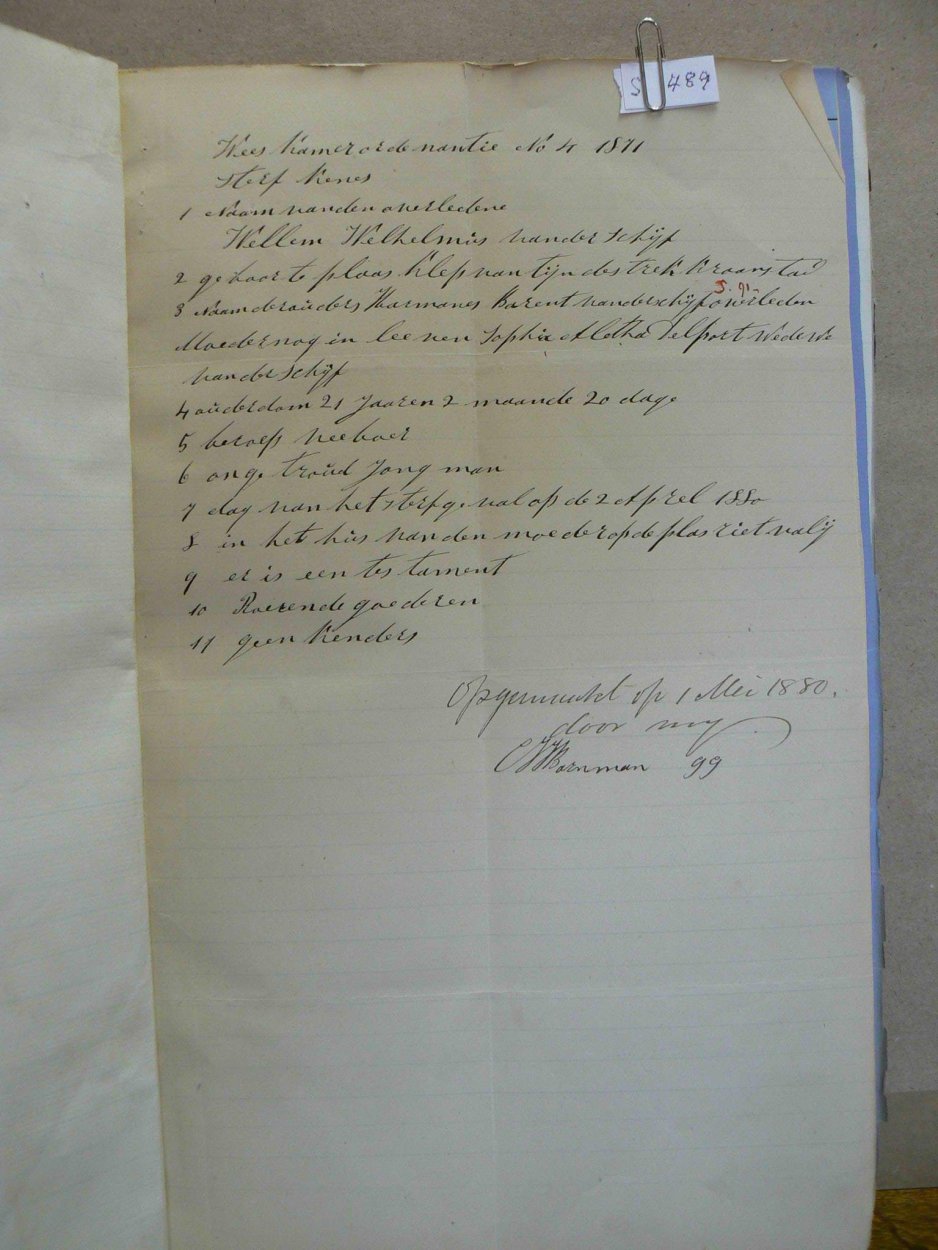 S 489
Wees kamer ordenantie No 4 1871
sterf kenes
1 Naam van den overledene
Wellem Welhelmus van der Schijf
2 geboorte plaas Klepvantijn destrek Kroonstad
3 Naam der ouders Harmanes Barent van der schijf overleden
Moeder nog in leeven Sophia Aletha Pelport Wedewe
van der Schijf
4 ouderdom 21 Jaaren 2 maande 20 dage
5 beroep veeboer
6 onge troud Jong man
7 dag van het sterfgeval op de 2 April 1880
8 in het huis van den moeder op de plas rietvalij
9 er is een testament
10 Roerende goederen
11 geen kenders
Opgemaakt op 1 Mei 1880.
door my
Bornman gg